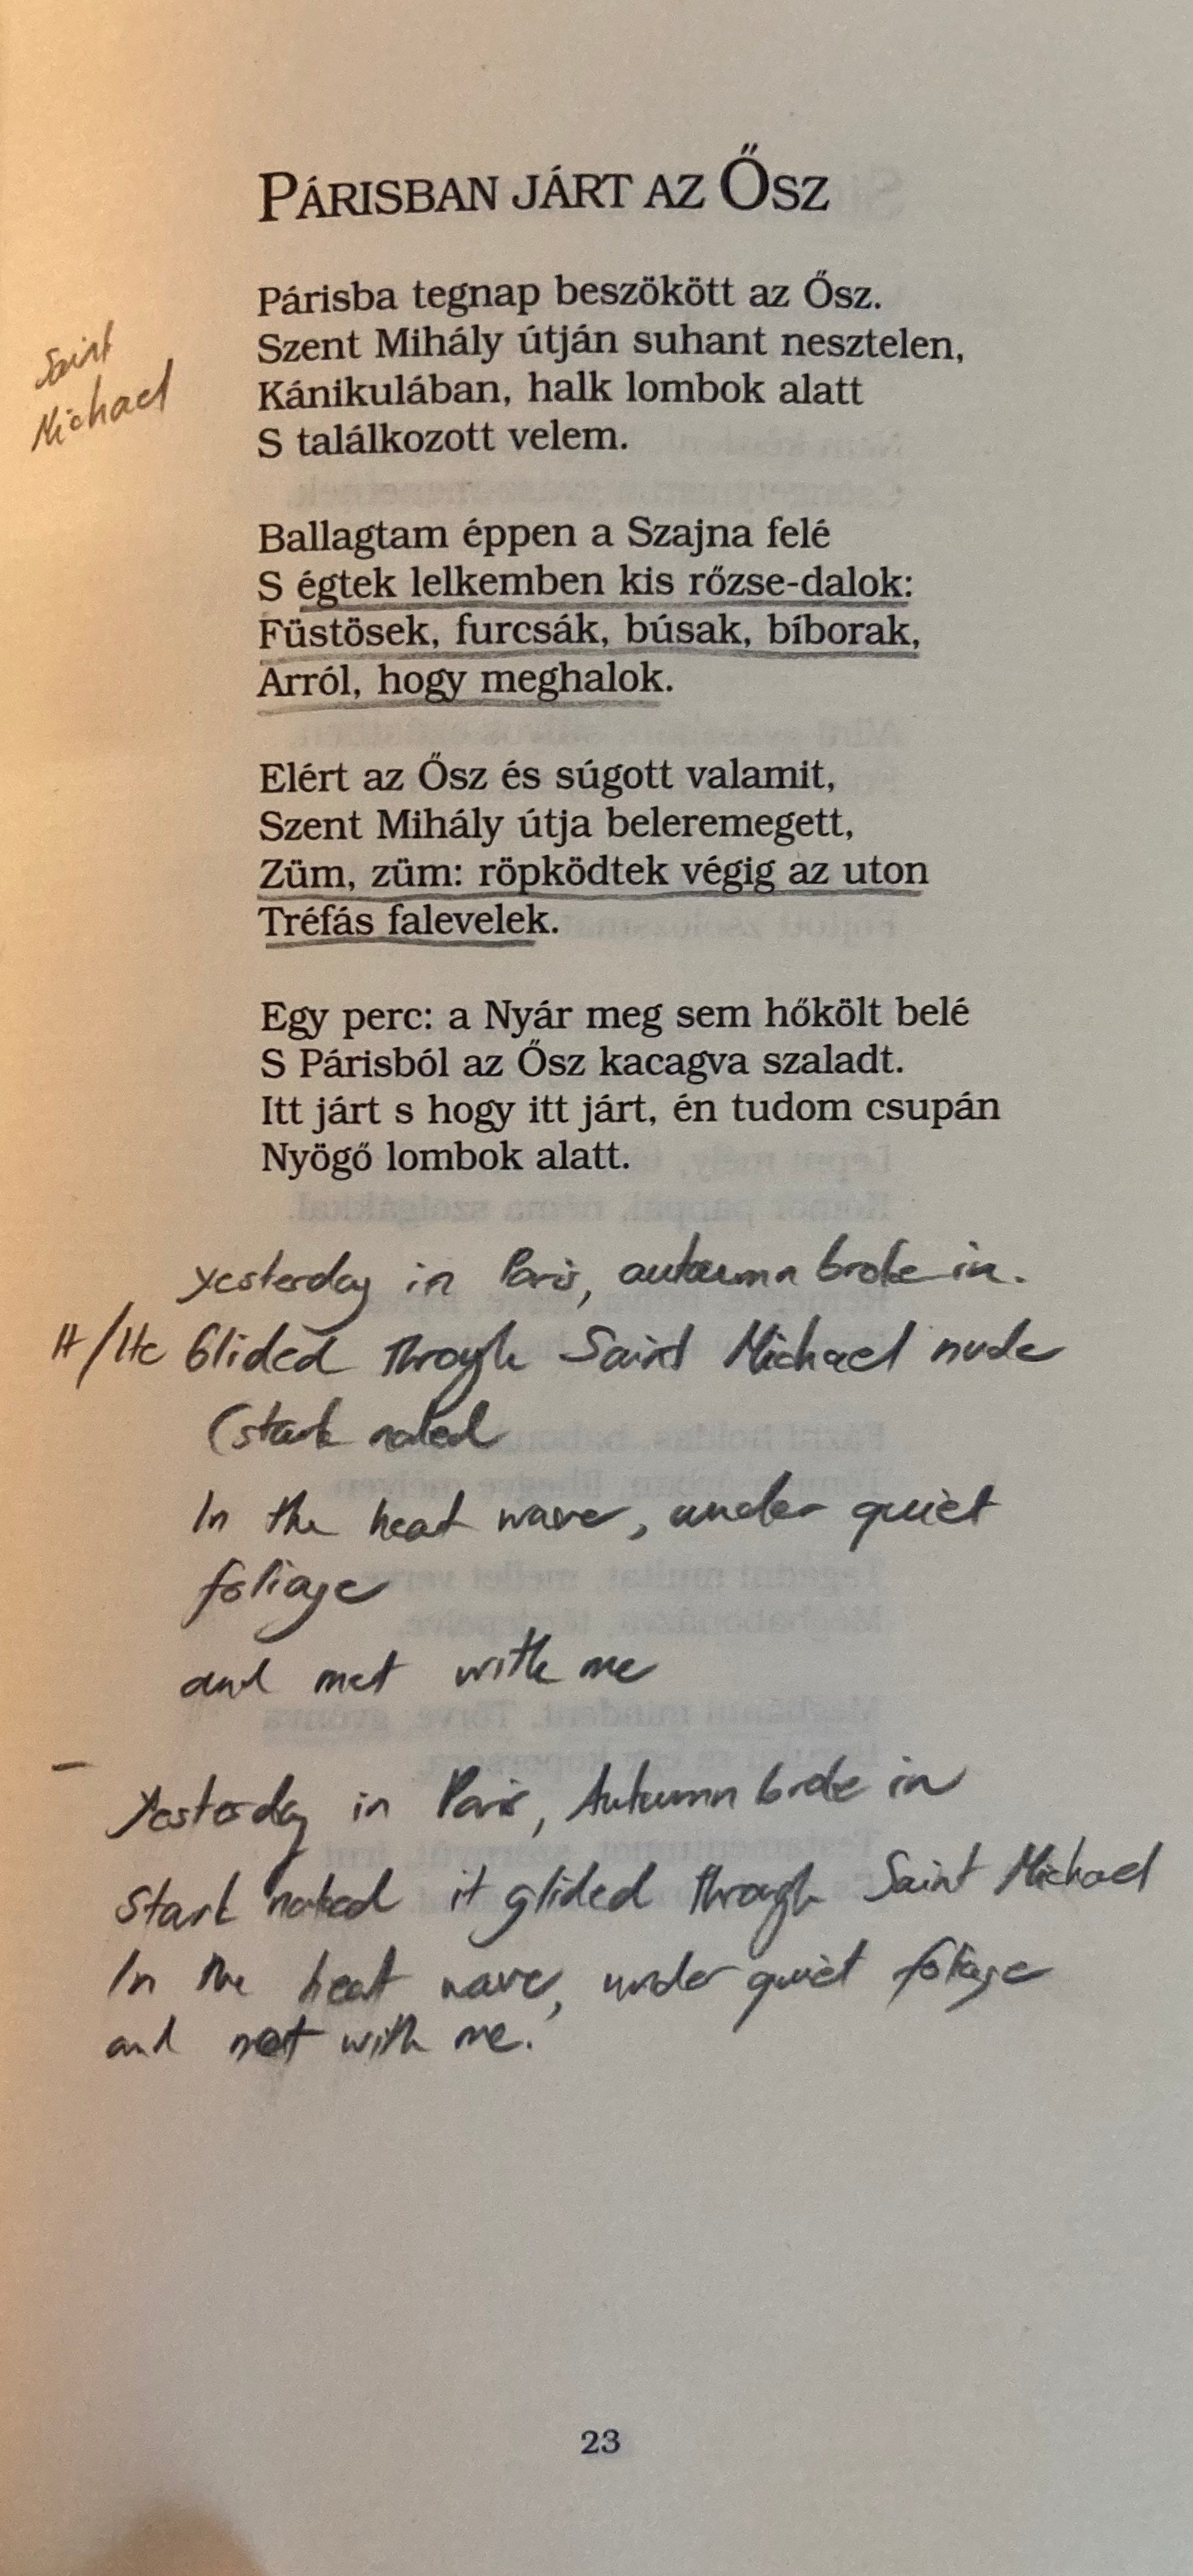 PÁRISBAN JÁRT AZ ŐSZ
Párisba tegnap beszökött az Ősz.
Szent Mihály útján suhant nesztelen,
Kánikulában, halk lombok alatt
S találkozott velem.
Saint
Michael
Ballagtam éppen a Szajna felé
S égtek lelkemben kis rőzse-dalok:
Füstösek, furcsák, búsak, bíborak,
Arról, hogy meghalok.
Elért az Ősz és súgott valamit,
Szent Mihály útja beleremegett,
Züm, züm: röpködtek végig az uton
Tréfás falevelek.
Egy perc: a Nyár meg sem hőkölt belé
S Párisból az Ősz kacagva szaladt.
Itt járt s hogy itt járt, én tudom csupán
Nyögő lombok alatt.
yesterday in Paris, autumn broke in.
It/He Glided through Saint Michael nude
(stark naked
In the heat wave, under quiet
foliage
and met with me
Yesterday in Paris, Autumn broke in
stark naked it glided through Saint Michael
In the heat wave, under quiet foliage
and met with me.
23